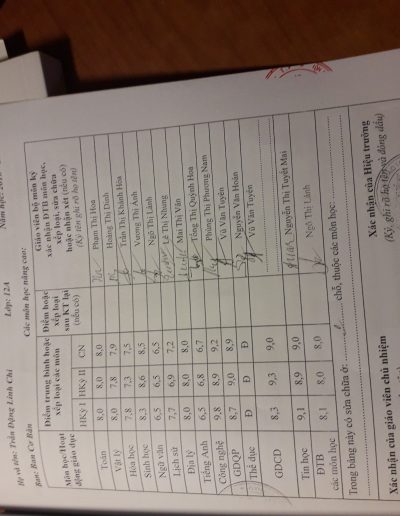 Năm học: 201
Họ và tên: Trần Đặng Linh Chi Lớp: 12A
Ban: Ban Cơ Bản Các môn học nâng cao:
Môn học/Hoạt động giáo dục
Điểm trung bình hoặc xếp loại các môn
HKỳ I HKỳ II CN
Điểm hoặc xếp loại sau KT lại (nếu có)
Giáo viên bộ môn ký
xác nhận ĐTB môn học,
xếp loại, sửa chữa
hoặc nhận xét (nếu có)
(Ký, ghi rõ họ tên)
Toán 8,0 8,0 8,0 Phạm Thị Hoa
Vật lý 8,0 7,8 7,9 Hoàng Thị Dinh
Hóa học 7,8 7,3 7,5 Trần Thị Khánh Hòa
Sinh học 8,3 8,6 8,5 Vương Thị Ánh
Ngữ văn 6,5 6,5 6,5 Ngô Thị Lành
Lịch sử 7,7 6,9 7,2 Lê Thị Nhung
Địa lý 8,0 8,0 8,0 Mai Thị Vân
Tiếng Anh 6,5 6,8 6,7 Tống Thị Quỳnh Hoa
Công nghệ 9,8 8,9 9,2 Phùng Thị Phương Nam
GDQP 8,7 9,0 8,9 Vũ Văn Tuyên
Thể dục Đ Đ Đ Nguyễn Văn Hoàn
Đ Đ Vũ Văn Tuyên
GDCD 8,3 9,3 9,0 Nguyễn Thị Tuyết Mai
Tin học 9,1 8,9 9,0
ĐTB các môn học 8,1 8,0 8,0 Ngô Thị Lành
Trong bảng này có sửa chữa ở: chỗ, thuộc các môn học:
Xác nhận của giáo viên chủ nhiệm Xác nhận của Hiệu trưởng
(Ký, ghi rõ họ tên và đóng dấu)